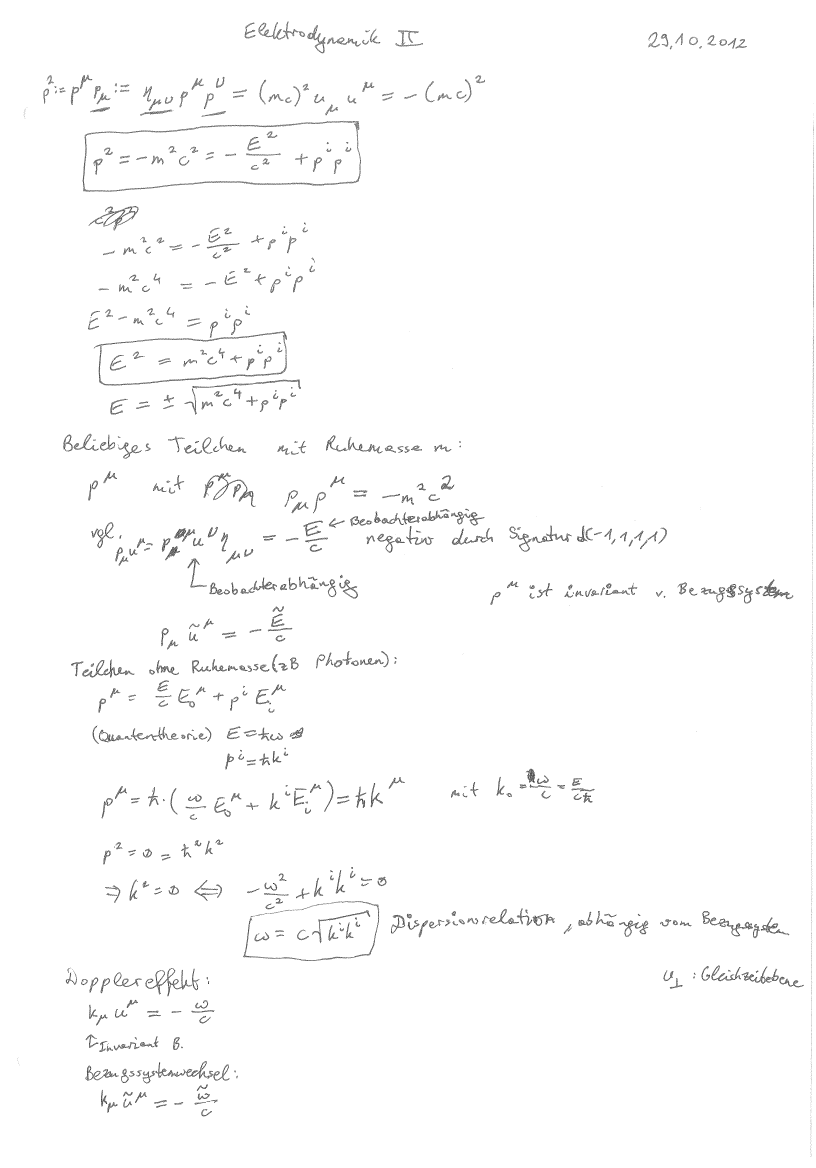 Elektrodynamik II 29.10.2012
p² := p^μ p_μ := η_μν p^μ p^ν = (mc)² u_μ u^μ = -(mc)²
p² = -m²c² = - E²/c² + p^i p^i
-m²c² = - E²/c² + p^i p^i
-m²c⁴ = -E² + p^i p^i
E² - m²c⁴ = p^i p^i
E² = m²c⁴ + p^i p^i
E = ± √(m²c⁴ + p^i p^i)
Beliebiges Teilchen mit Ruhemasse m:
p^μ mit p_μ p^μ = -m²c²
vgl. p_μ u^μ = p^μ u^ν η_μν = - E/c ← Beobachterabhängig negativ durch Signatur d(-1,1,1,1)
Beobachterabhängig p^μ ist invariant v. Bezugssystem
p_μ ũ^μ = - Ẽ/c
Teilchen ohne Ruhemasse (zB Photonen):
p^μ = E/c E₀^μ + p^i E_i^μ
(Quantentheorie) E = ħω
p^i = ħk^i
p^μ = ħ·(ω/c E₀^μ + k^i E_i^μ) = ħk^μ mit k₀ = ω/c = E/cħ
p² = 0 = ħ²k²
⇒ k² = 0 ⇔ - ω²/c² + k^i k^i = 0
ω = c√(k^i k^i) Dispersionsrelation, abhängig vom Bezugssystem
Dopplereffekt: u_⊥ : Gleichzeitebene
k_μ u^μ = - ω/c
↑ Invariant B.
Bezugssystemwechsel:
k_μ ũ^μ = - ω̃/c